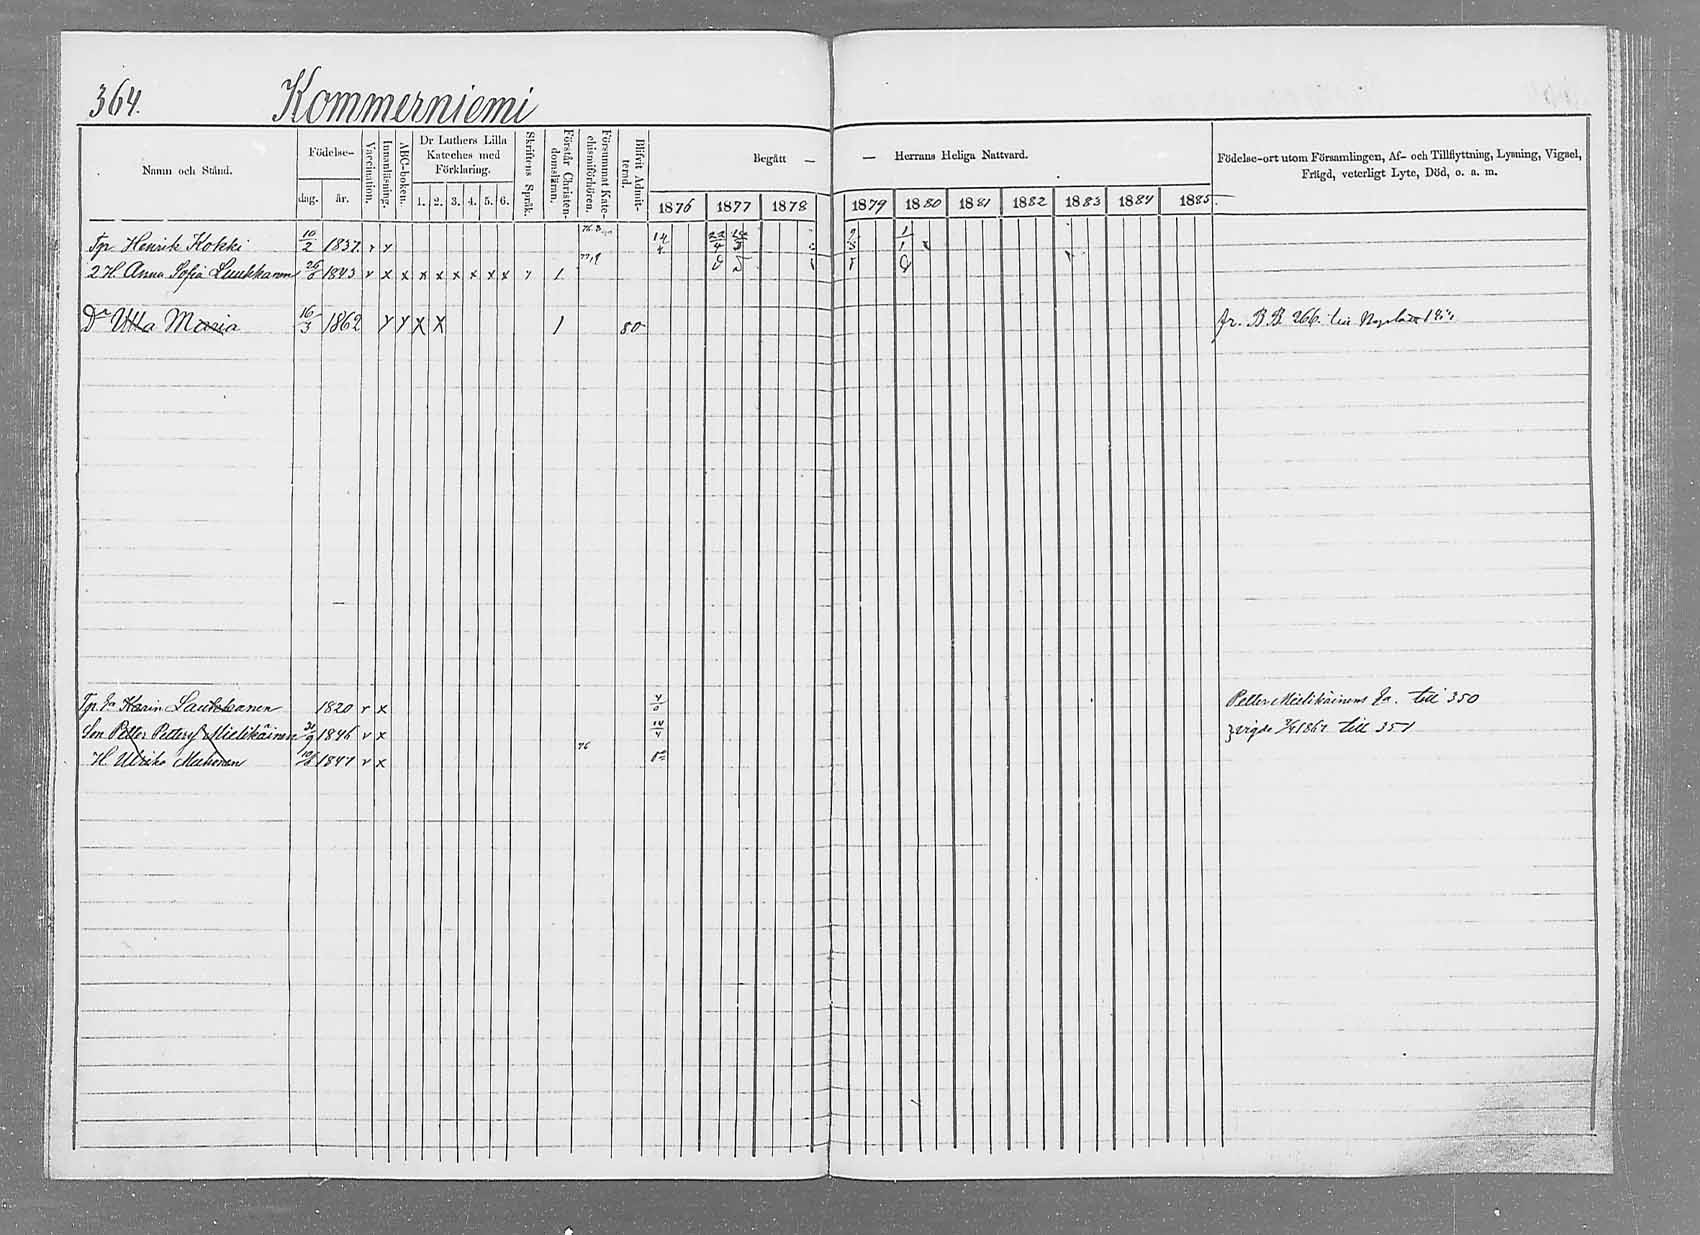 364. Kommerniemi
Namn och Stånd.
Födelse-
dag. år.
Vaccination.
Innanläsning.
ABC-boken.
Dr Luthers Lilla
Kateches med
Förklaring.
1. 2. 3. 4. 5. 6.
Skriftens Språk.
Förstår Christen-
domsläran.
Försummat Kate-
chismiförhören.
Blifvit Admit-
terad.
Begått — — Herrans Heliga Nattvard.
1876 1877 1878 1879 1880 1881 1882 1883 1884 1885.
Födelse-ort utom Församlingen, Af- och Tillflyttning, Lysning, Vigsel,
Frägd, veterligt Lyte, Död, o. a. m.
Tp. Henrik Kokki 10/2 1837. v x
2 H. Anna Sofia Luukkanen 1843 v x x x x x x x x 1
Dr Ulla Maria 16/3 1862 x x x x 1 80 fr. B.B. 266.
Tp. Karin Laukkanen 1820 v x Petter Mielikäinens till 350
Son Petter Petterss Mielikäinen 1846 v x vigde till 351
H. Ulrika Muhonen 1847 v x 76